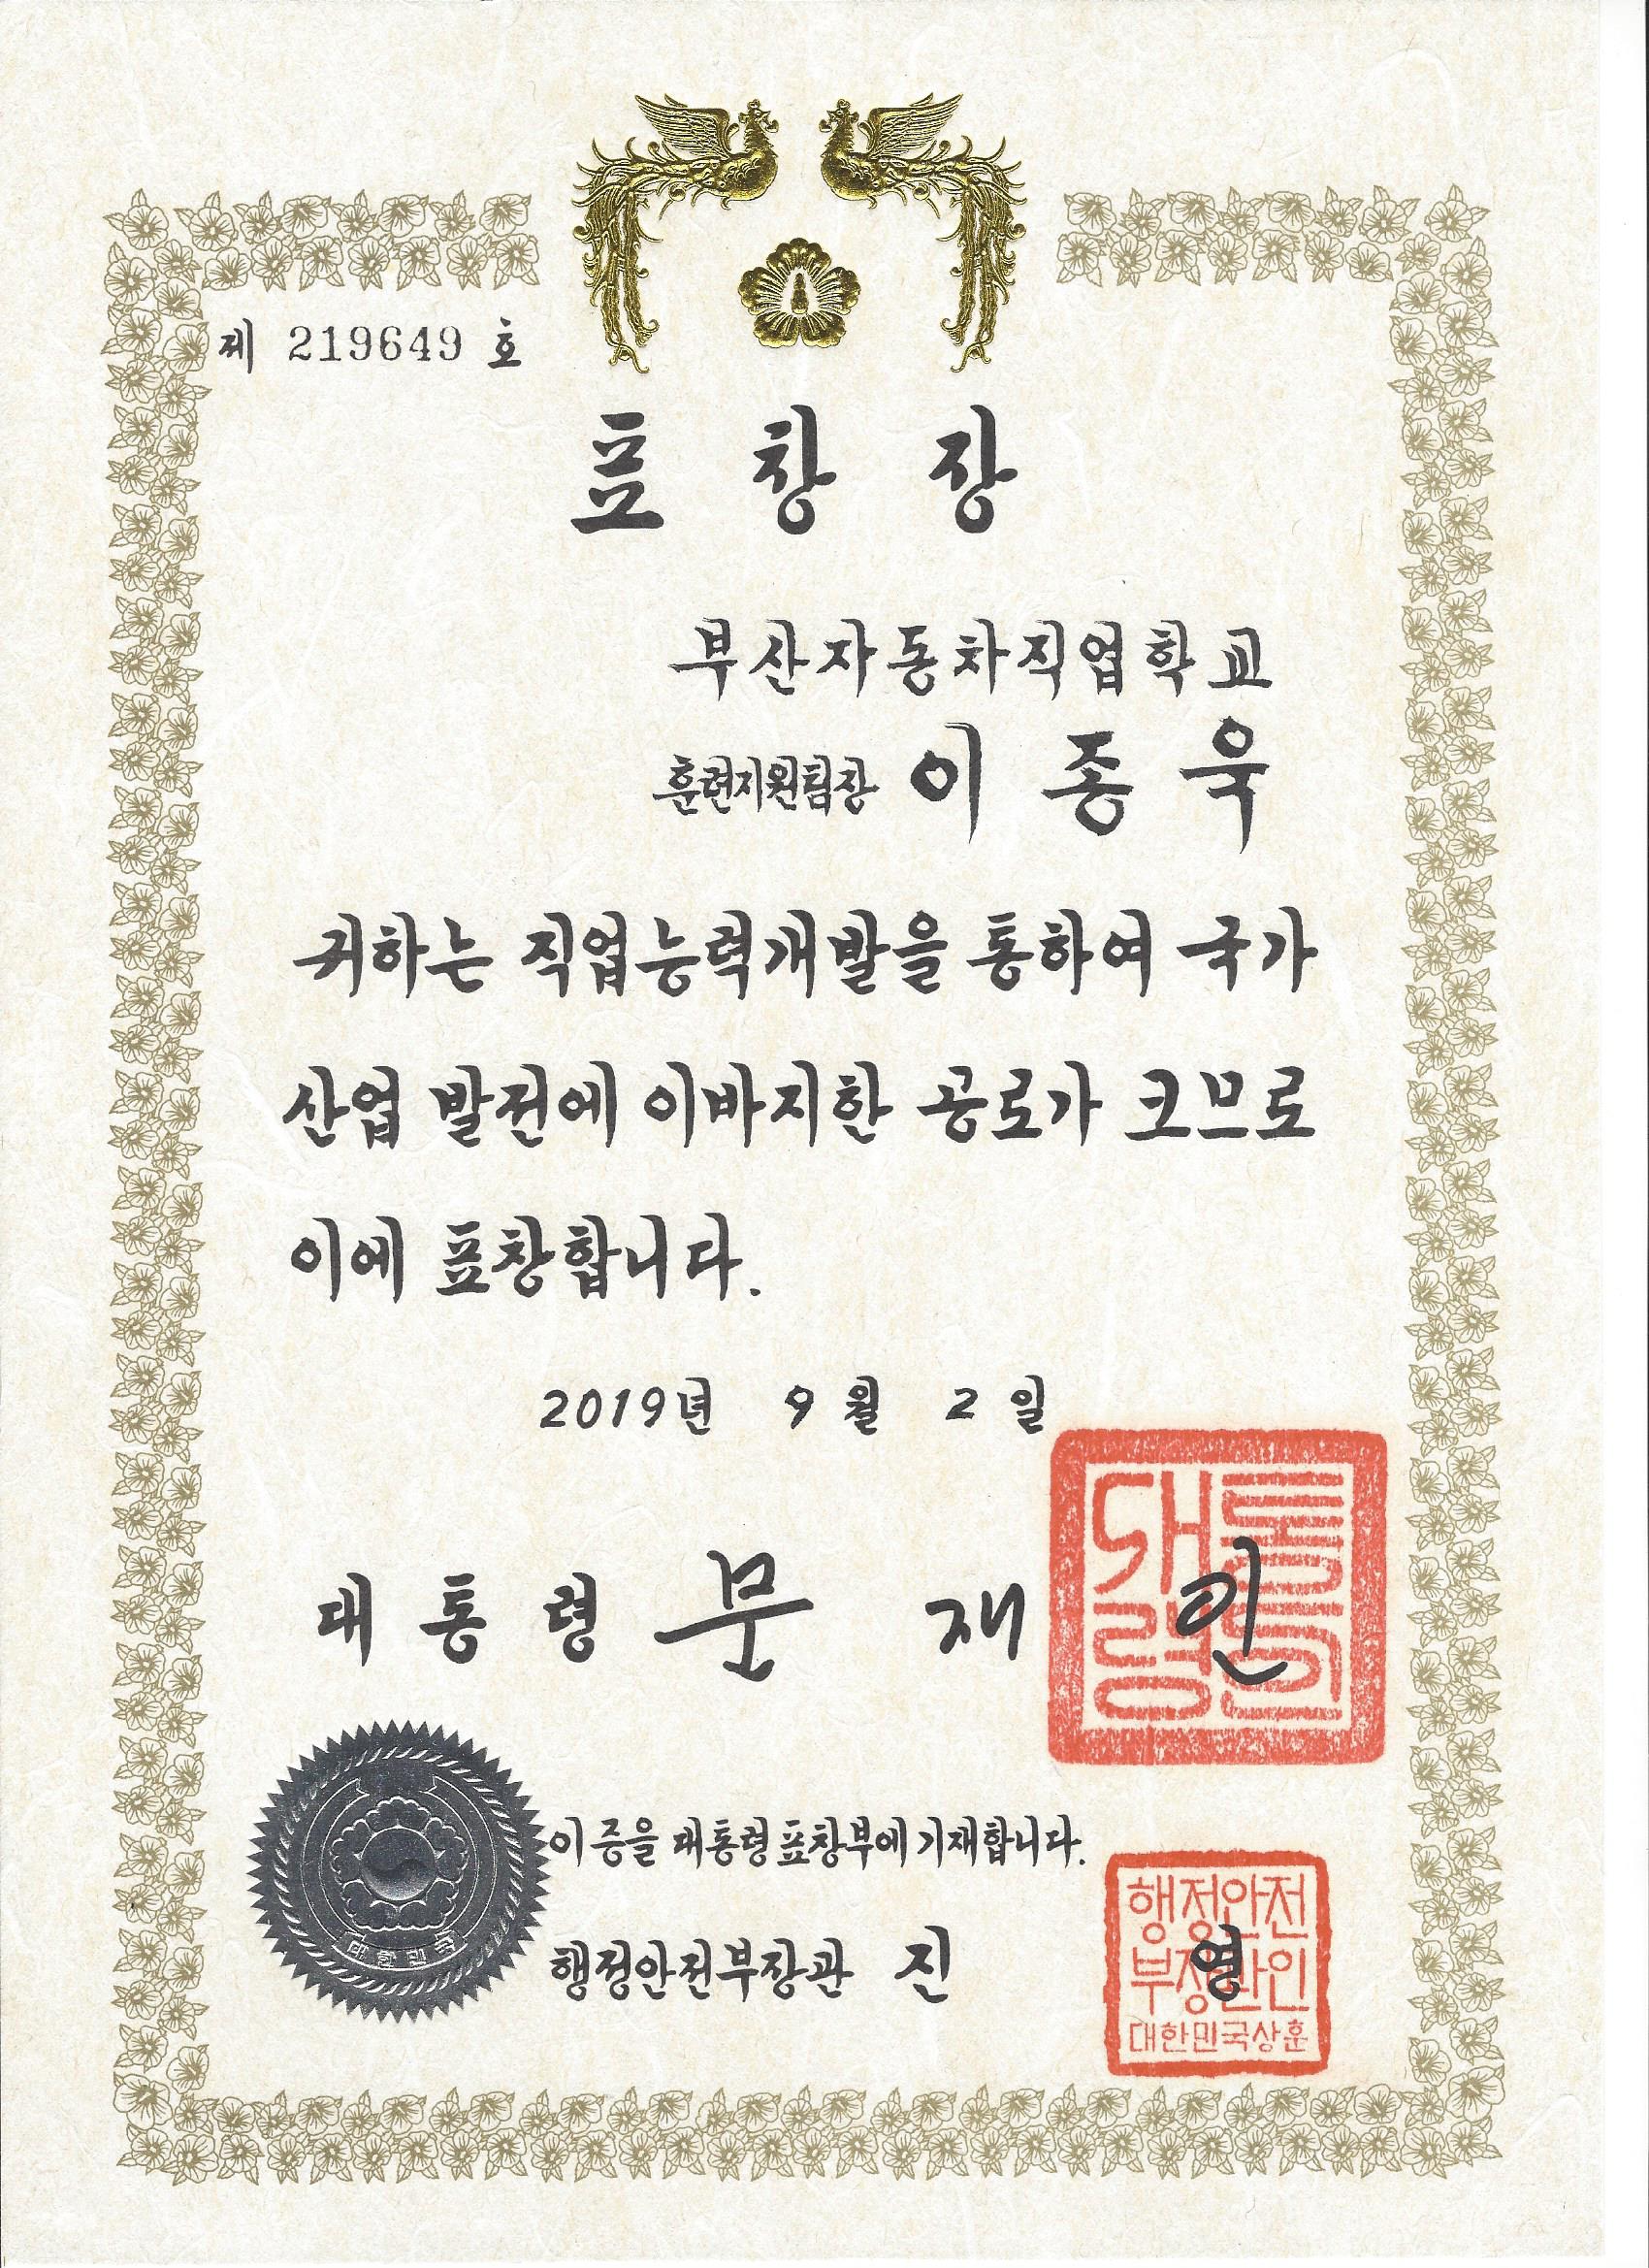 제 219649 호
표 창 장
부산자동차직업학교
훈련지원팀장 이 종 욱
귀하는 직업능력개발을 통하여 국가
산업 발전에 이바지한 공로가 크므로
이에 표창합니다.
2019년 9월 2일
대 통 령 문 재 인
대통령
이 증을 대통령표창부에 기재합니다.
행정안전부장관 진 영
행정안전
부장관인
대한민국상훈
대한민국